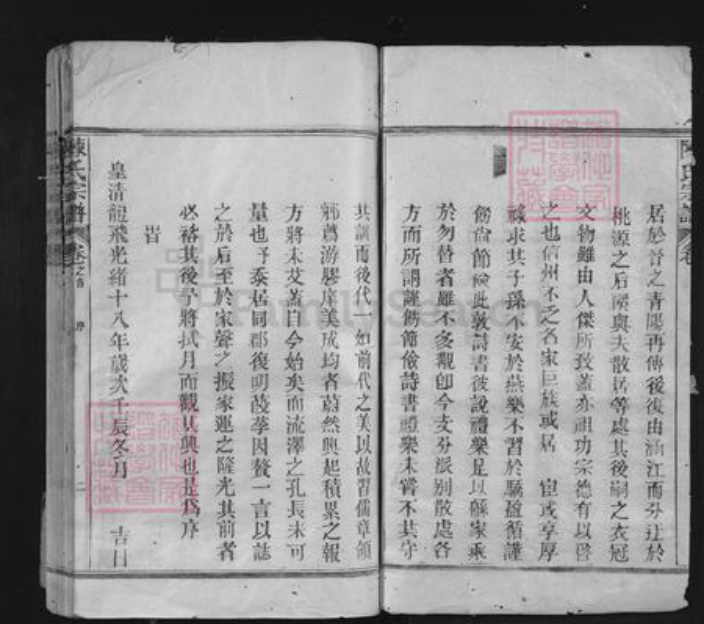 居於晉之青陽再傳後復由涵江而分迁於
桃源之后溪與夫散居等處其後嗣之衣冠
文物雖由人傑所致蓋亦祖功宗德有以啓
之也信州不乏名家巨族或居 宦或享厚
祿求其子孫不安於燕樂不習於驕盈循謹
飭尚節儉此敦詩書彼說禮樂足以繇家乘
於勿替者雖不多覯卽今支分派別散處各
方而所謂謹飭節儉詩書禮樂未嘗不共守
其訓而後代一如前代之美以故習儒章領
鄉薦游膠庠美成均者蔚然興起積累之報
方將未艾蓋自今始矣而流澤之孔長未可
量也予忝居同郡復叨葭莩因贅一言以誌
之於后至於家聲之振家運之隆光其前者
必裕其後予將拭目而觀其興也是為序
旹
皇清龍飛光緒十八年歲次壬辰冬月 吉日
陳氏宗譜 卷之首 序 二
陳氏宗譜 卷
FamilySearch